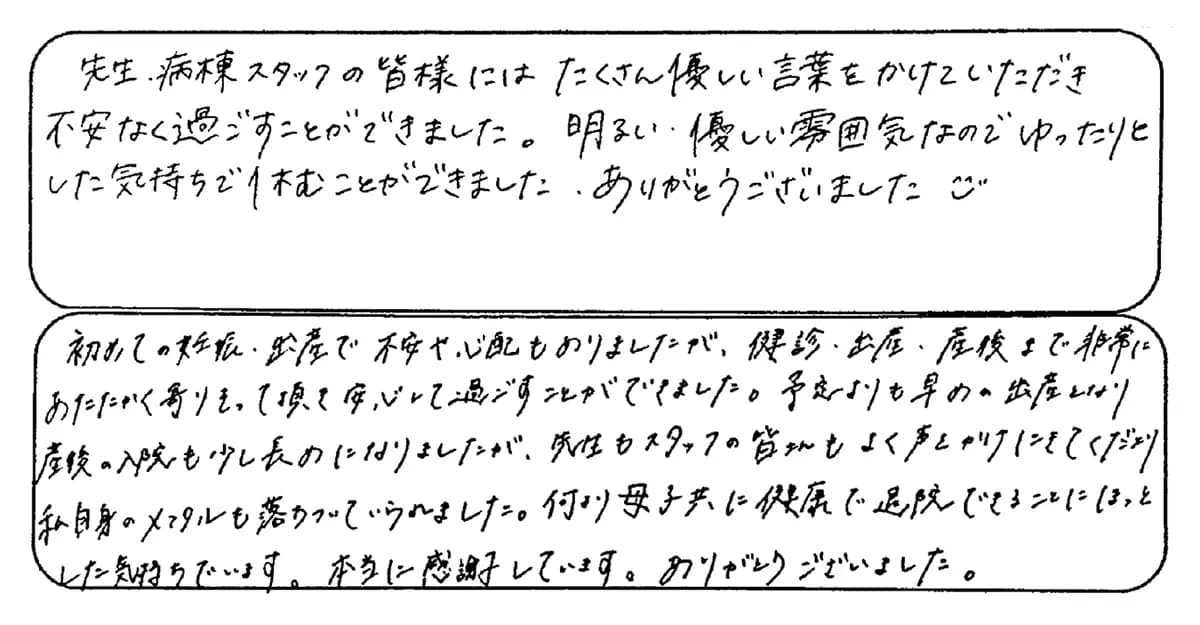 先生、病棟スタッフの皆様には たくさん優しい言葉をかけていただき
不安なく過ごすことができました。明るい・優しい雰囲気なのでゆったりと
した気持ちで休むことができました、ありがとうございました
初めての妊娠・出産で不安や心配もありましたが、健診・出産・産後まで非常に
あたたかく寄りそって頂き安心して過ごすことができました。予定よりも早めの出産となり
産後の入院も少し長めになりましたが、先生もスタッフの皆さんもよく声をかけにきてくださり
私自身のメンタルも落ちついていられました。何より母子共に健康で退院できることにほっと
した気持ちでいます。本当に感謝しています。ありがとうございました。